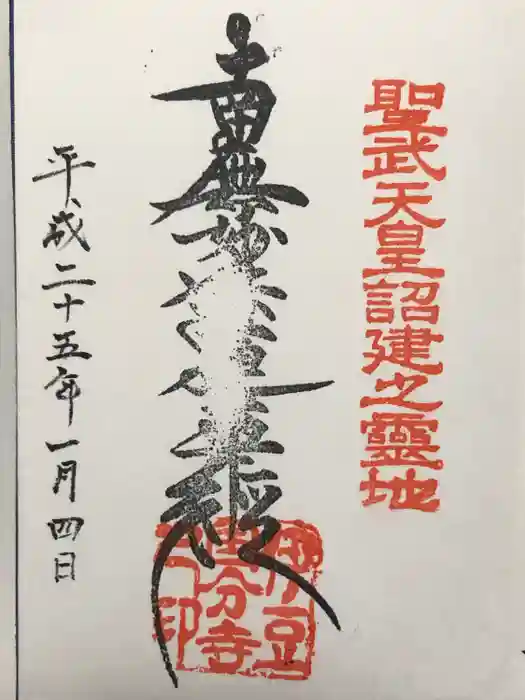 聖武天皇詔建之靈地
南無妙法蓮華経
伊豆
国分寺
平成二十五年一月四日